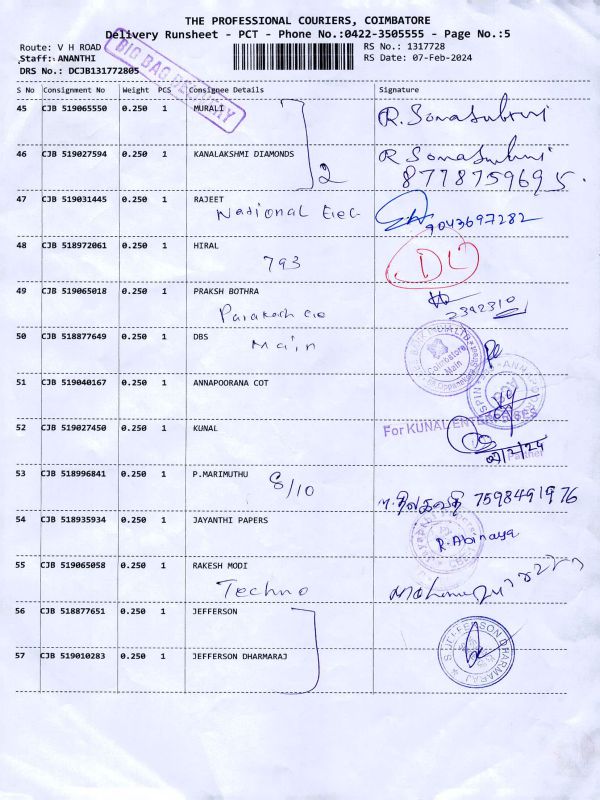 THE PROFESSIONAL COURIERS, COIMBATORE
Delivery Runsheet - PCT - Phone No.:0422-3505555 - Page No.:5
Route: V H ROAD
RS No.: 1317728
Staff: ANANTHI
RS Date: 07-Feb-2024
DRS No.: DCJB131772805
BIG BAG DELIVERY
S No Consignment No Weight PCS Consignee Details Signature
45 CJB 519065550 0.250 1 MURALI
46 CJB 519027594 0.250 1 KANALAKSHMI DIAMONDS
2
8778759695
47 CJB 519031445 0.250 1 RAJEET
National Elec
9043697282
48 CJB 518972061 0.250 1 HIRAL
793
DL
49 CJB 519065018 0.250 1 PRAKSH BOTHRA
2392310
50 CJB 518877649 0.250 1 DBS
Main
Coimbatore
Main
51 CJB 519040167 0.250 1 ANNAPOORANA COT
52 CJB 519027450 0.250 1 KUNAL
For KUNAL ENTERPRISES
Partner
53 CJB 518996841 0.250 1 P.MARIMUTHU
8/10
7598491976
54 CJB 518935934 0.250 1 JAYANTHI PAPERS
R.Abinaya
55 CJB 519065058 0.250 1 RAKESH MODI
Techno
56 CJB 518877651 0.250 1 JEFFERSON
57 CJB 519010283 0.250 1 JEFFERSON DHARMARAJ
S JEFFERSON DHARMARAJ